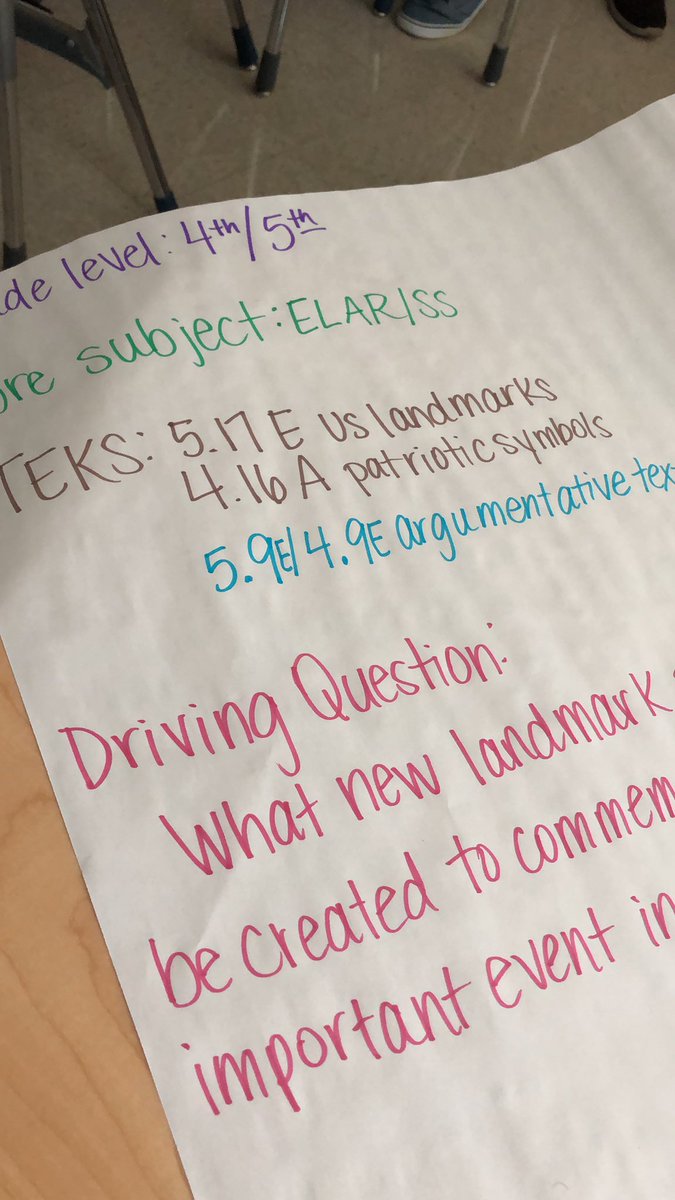 de level: 4th/5th
re subject: ELAR/SS
TEKS: 5.17 E US landmarks
4.16 A patriotic symbols
5.9E/4.9E argumentative tex
Driving Question:
What new landmark
be created to commem
important event in